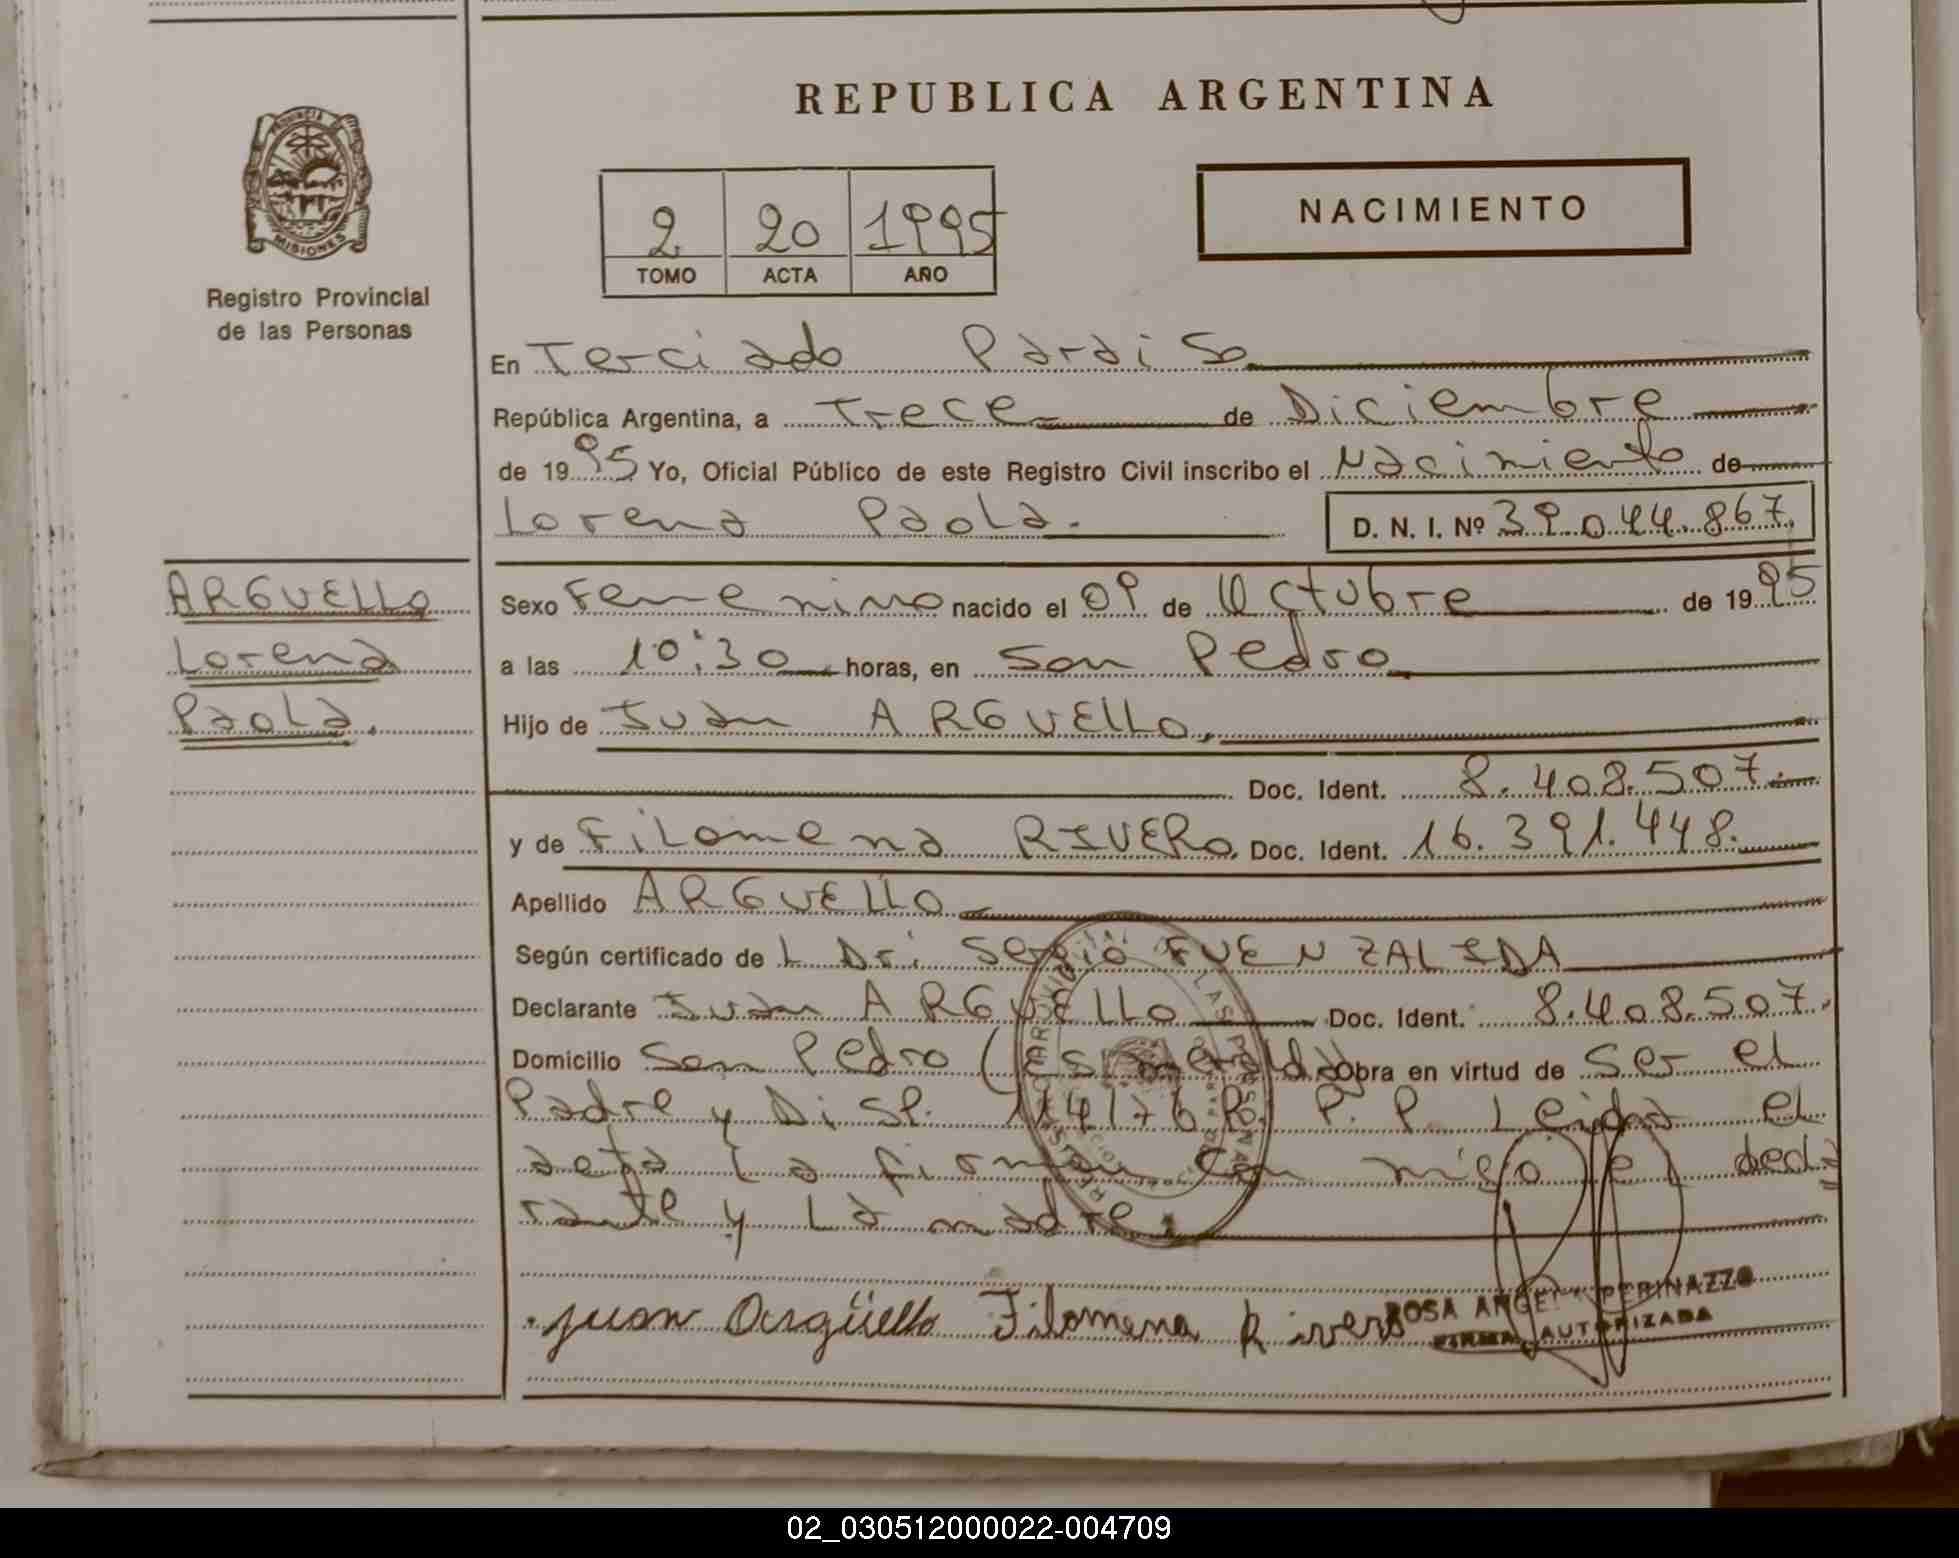 REPUBLICA ARGENTINA
PROVINCIA DE
MISIONES
Registro Provincial
de las Personas
2 20 1995
TOMO ACTA AÑO
NACIMIENTO
En Terciado Paraiso
República Argentina, a Trece de Diciembre
de 1995 Yo, Oficial Público de este Registro Civil inscribo el Nacimiento de
Lorena Paola. D. N. I. Nº 39.044.867.
ARGUELLO
Lorena
Paola.
Sexo Femenino nacido el 09 de Octubre de 1995
a las 10:30 horas, en San Pedro
Hijo de Juan ARGUELLO,
Doc. Ident. 8.408.507.
y de Filomena RIVERO. Doc. Ident. 16.391.448.
Apellido ARGUELLO
Según certificado de L Dr: Sergio FUENZALIDA
Declarante Juan ARGUELLO Doc. Ident. 8.408.507.
Domicilio San Pedro (Esmeralda) Obra en virtud de Ser el
Padre y Disp. 114/76 R. P. P. Leida el
acta la firman con migo el decla
rante y La madre.
Juan Argüello Filomena Rivero
ROSA PERINAZZO
FIRMA AUTORIZADA
02_030512000022-004709